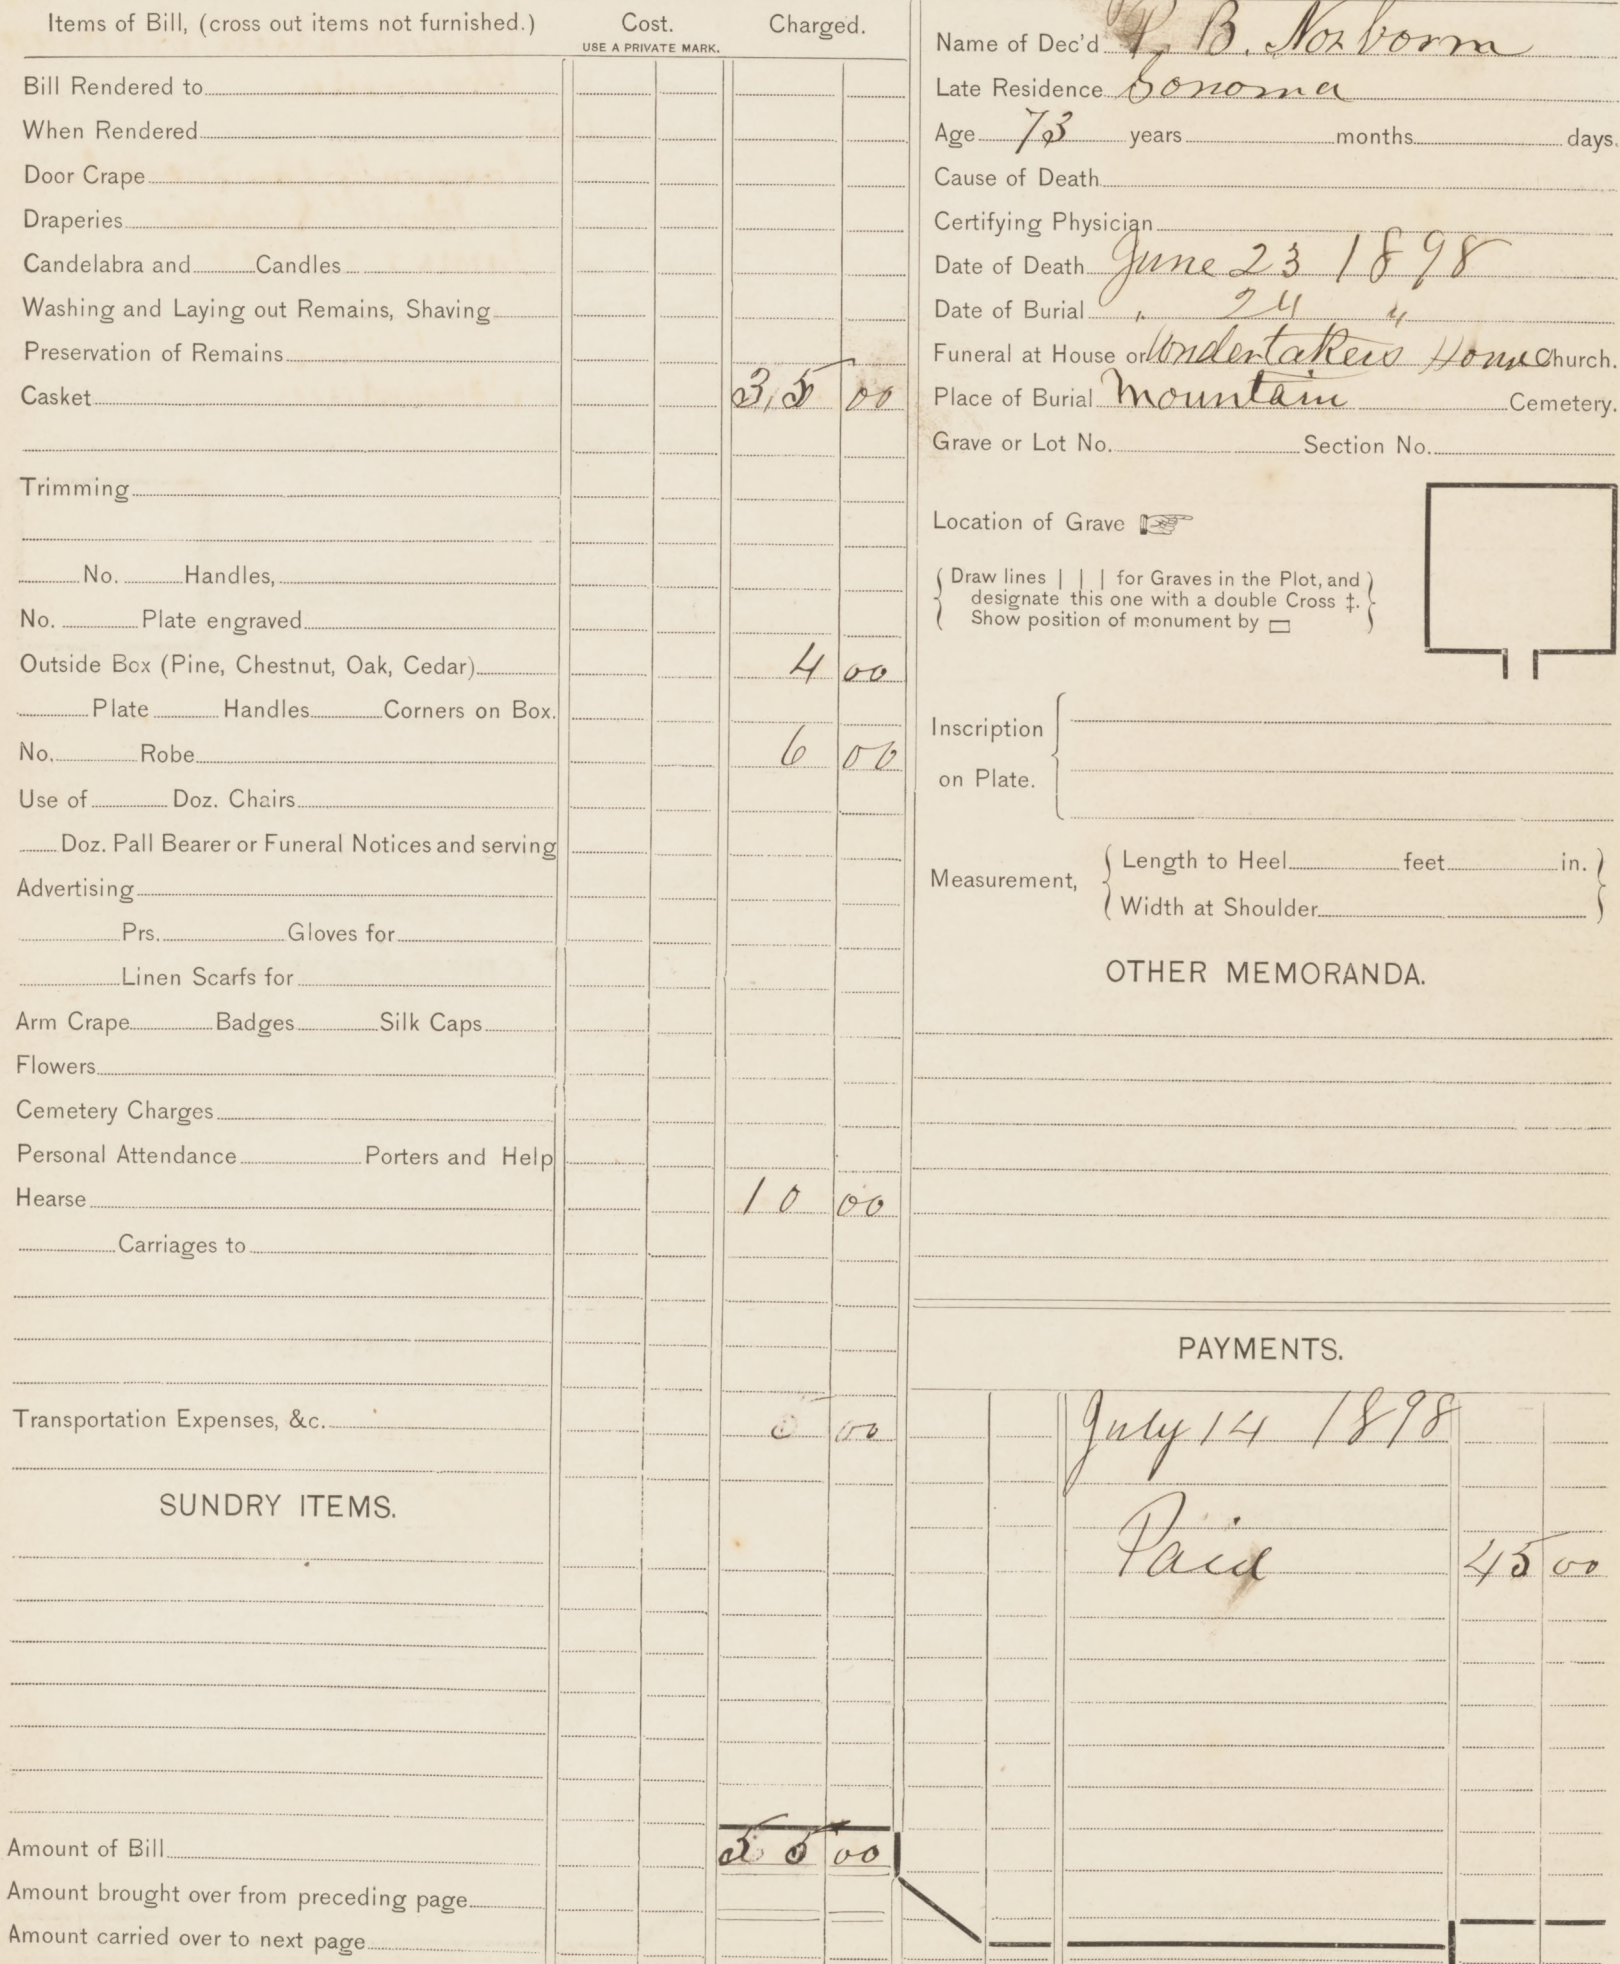 Items of Bill, (cross out items not furnished.) Cost. Charged.
USE A PRIVATE MARK.
Bill Rendered to
When Rendered
Door Crape
Draperies
Candelabra and Candles
Washing and Laying out Remains, Shaving
Preservation of Remains
Casket 35 00
Trimming
No. Handles,
No. Plate engraved
Outside Box (Pine, Chestnut, Oak, Cedar) 4 00
Plate Handles Corners on Box.
No. Robe 6 00
Use of Doz. Chairs
Doz. Pall Bearer or Funeral Notices and serving
Advertising
Prs. Gloves for
Linen Scarfs for
Arm Crape Badges Silk Caps
Flowers
Cemetery Charges
Personal Attendance Porters and Help
Hearse 10 00
Carriages to
Transportation Expenses, &c. 00
SUNDRY ITEMS.
Amount of Bill 55 00
Amount brought over from preceding page
Amount carried over to next page
Name of Dec'd B.
Late Residence Sonoma
Age 73 years months days.
Cause of Death
Certifying Physician
Date of Death June 23 1898
Date of Burial " 24 "
Funeral at House or Undertakers Home Church.
Place of Burial Mountain Cemetery.
Grave or Lot No. Section No.
Location of Grave
Draw lines | | | for Graves in the Plot, and
designate this one with a double Cross ‡.
Show position of monument by
Inscription
on Plate.
Measurement, Length to Heel feet in.
Width at Shoulder
OTHER MEMORANDA.
PAYMENTS.
July 14 1898
Paid 45 00